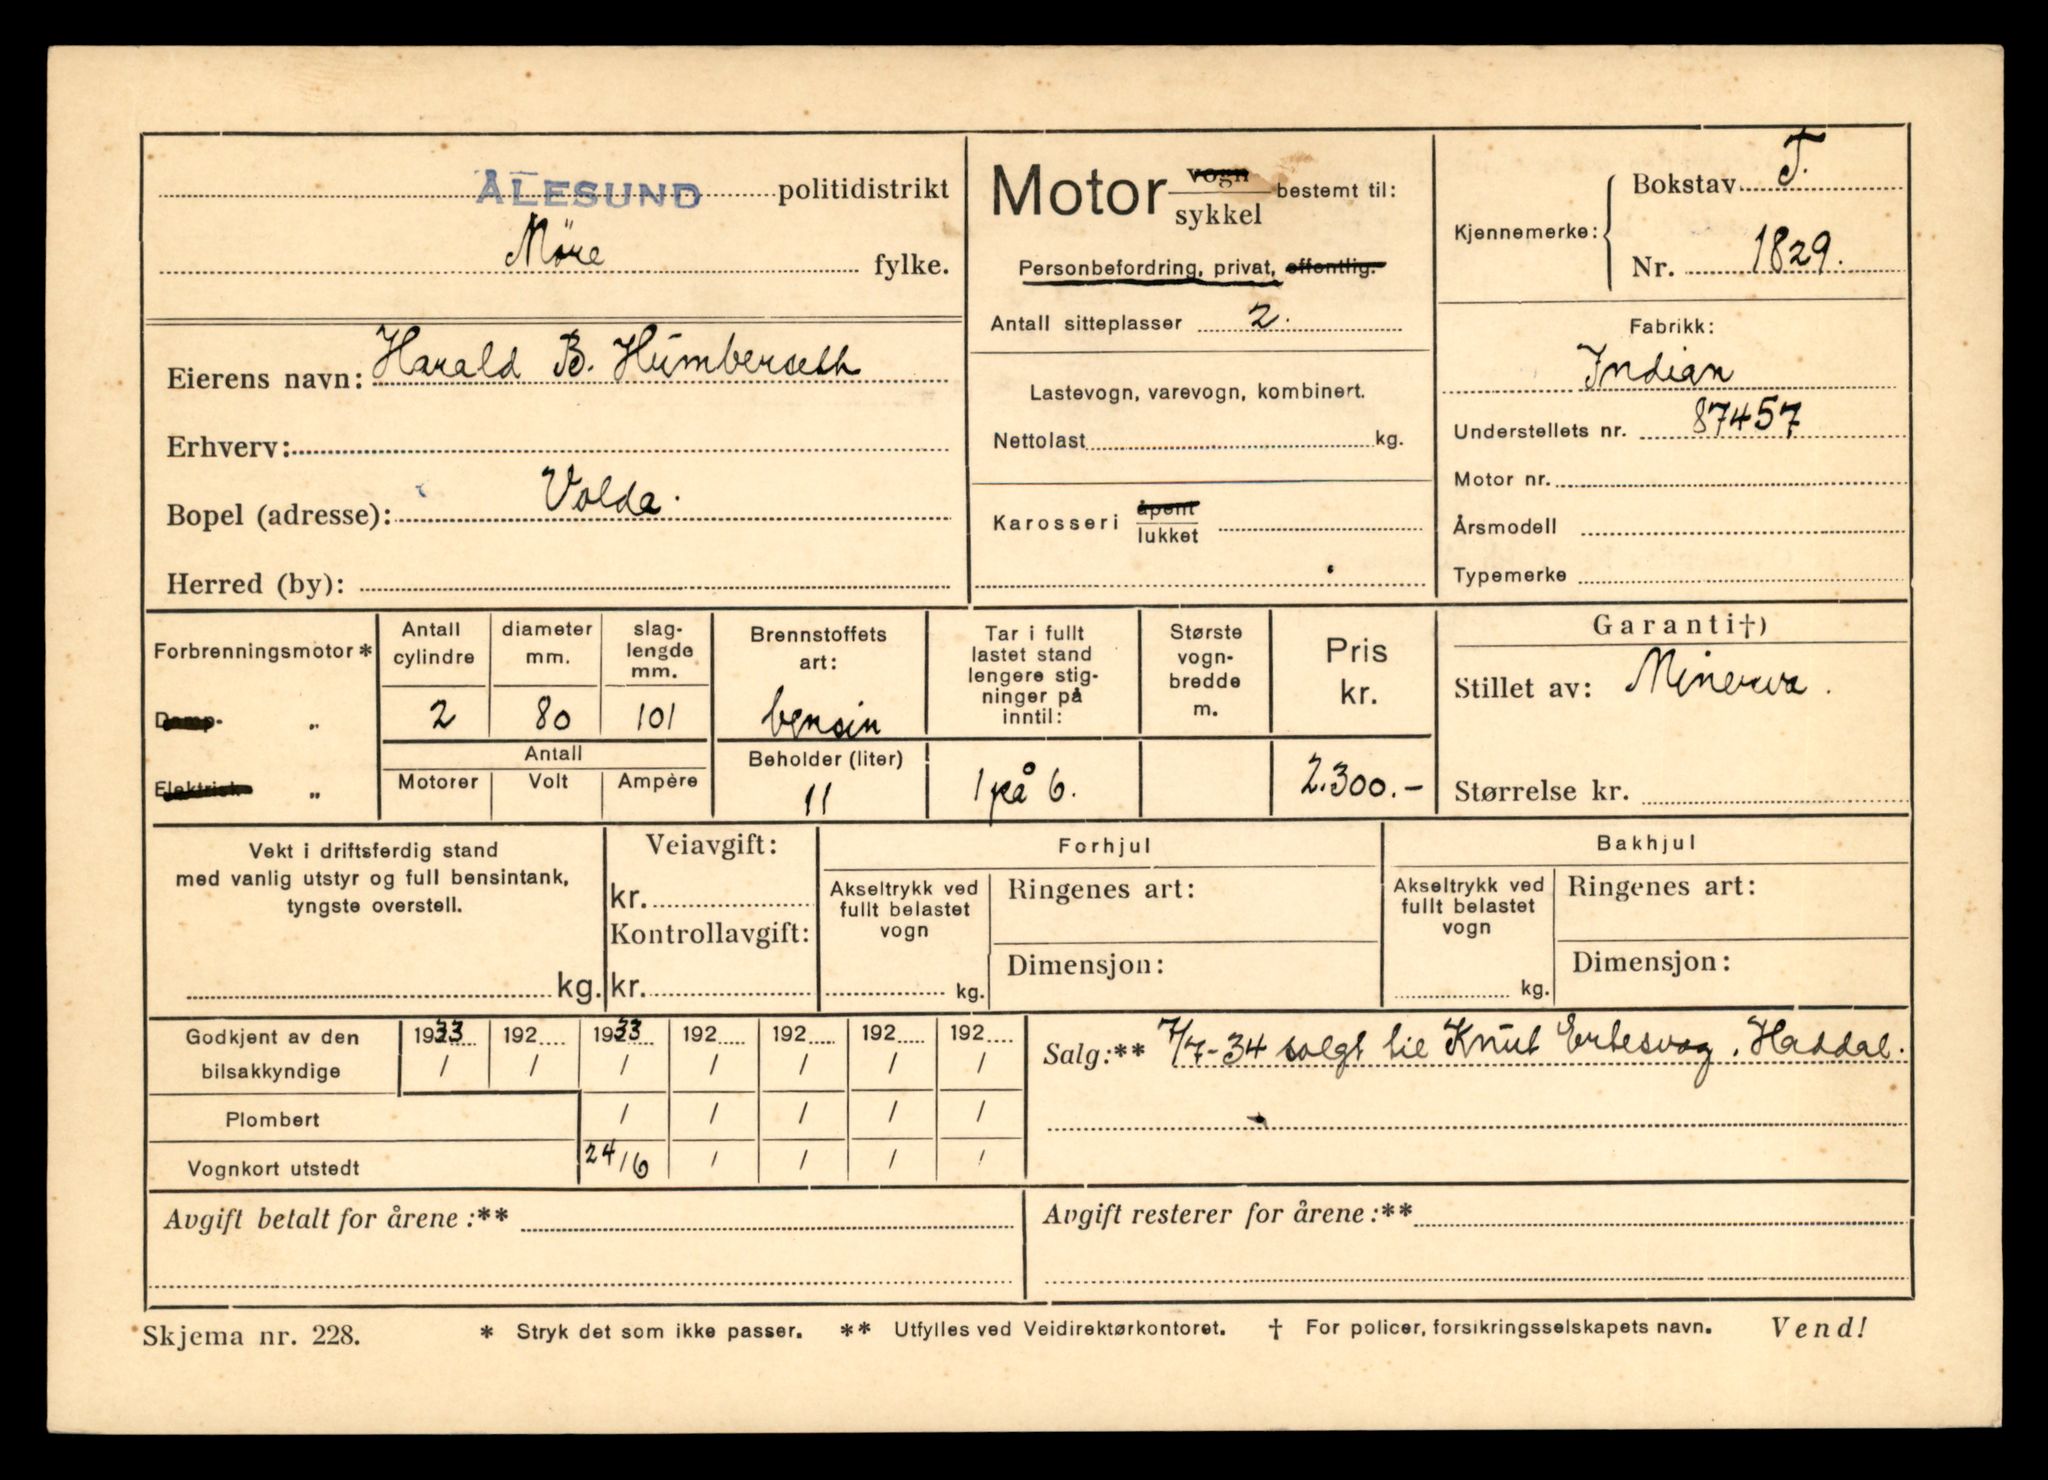 ÅLESUND politidistrikt
Möre fylke.
Eierens navn: Harald B. Humberseth
Erhverv:
Bopel (adresse): Volda.
Herred (by):
Motor vogn sykkel bestemt til:
Personbefordring, privat, offentlig.
Antall sitteplasser 2.
Lastevogn, varevogn, kombinert.
Nettolast kg.
Karosseri åpent lukket
Kjennemerke: Bokstav T.
Nr. 1829.
Fabrikk:
Indian
Understellets nr. 87457
Motor nr.
Årsmodell
Typemerke
Forbrenningsmotor *
Damp- „
Elektrisk „
Antall cylindre
2
diameter mm.
80
slag-
lengde
mm.
101
Antall
Motorer Volt Ampère
Brennstoffets
art:
bensin
Beholder (liter)
11
Tar i fullt
lastet stand
lengere stig-
ninger på
inntil:
1 på 6.
Største
vogn-
bredde
m.
Pris
kr.
2.300.-
Garanti†)
Stillet av: Minerva.
Størrelse kr.
Vekt i driftsferdig stand
med vanlig utstyr og full bensintank,
tyngste overstell.
kg.
Veiavgift:
kr.
Kontrollavgift:
kr.
Forhjul
Akseltrykk ved
fullt belastet
vogn
kg.
Ringenes art:
Dimensjon:
Bakhjul
Akseltrykk ved
fullt belastet
vogn
kg.
Ringenes art:
Dimensjon:
Godkjent av den 1933 192 1933 192 192 192 192
bilsakkyndige / / / / / / /
Plombert / / / / /
Vognkort utstedt 24/6 / / / /
Salg:** 7/7-34 solgt til Knut Ertesvag, Haddal.
Avgift betalt for årene:**
Avgift resterer for årene:**
Skjema nr. 228. * Stryk det som ikke passer. ** Utfylles ved Veidirektørkontoret. † For policer, forsikringsselskapets navn. Vend!